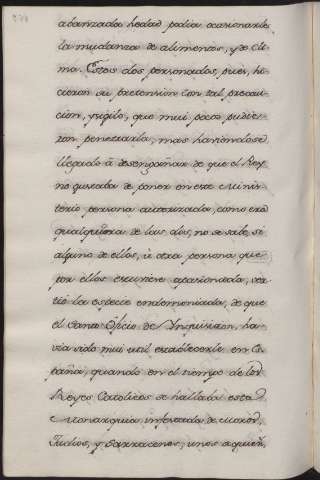 abanzada hedad podia ocasionarle
la mudanza de alimentos, y de cli-
ma. Estos dos personados, pues, hi-
cieron su pretension con tal precau-
cion, y sigilo, que mui pocos pudie-
ron penetrarla, mas haviendose
llegado à desengañar de que el Rey
no gustaba de poner en este Minis-
terio persona autorizada, como era
qualquiera de las dos, no se sabe, si
alguno de ellos, ù otra persona que
por ellos estuviese apasionada, ver-
tiò la especie endemoniada, de que
el Santo Oficio de Ynquisicion, ha-
via sido mui util establecerle en Es-
paña, quando en el tiempo de los
Reyes Catolicos se hallaba esta
Monarquia infestada de
Judios, y Sarracenos, unos a quien,